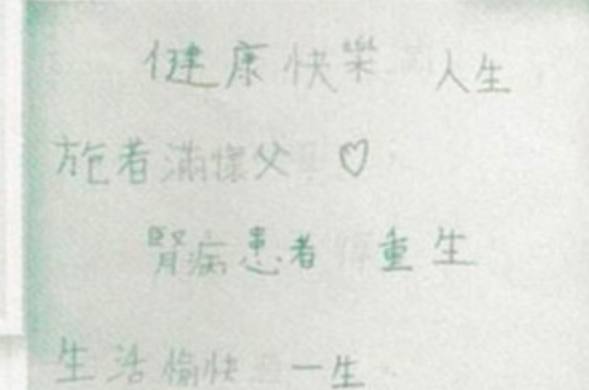 健康快樂 人生
施者滿懷父 ♡
腎病患者 重生
生活愉快 一生